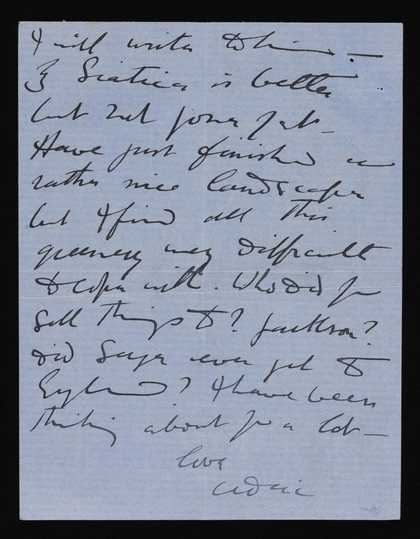 I will write to him —
My Sciatica is better
but not gone yet —
Have just finished a
rather nice landscape
but I find all this
greenery very difficult
to cope with. Who did you
sell things to? Jackson?
Did ever get to
England? I have been
thinking about you a lot —
love
Cedric